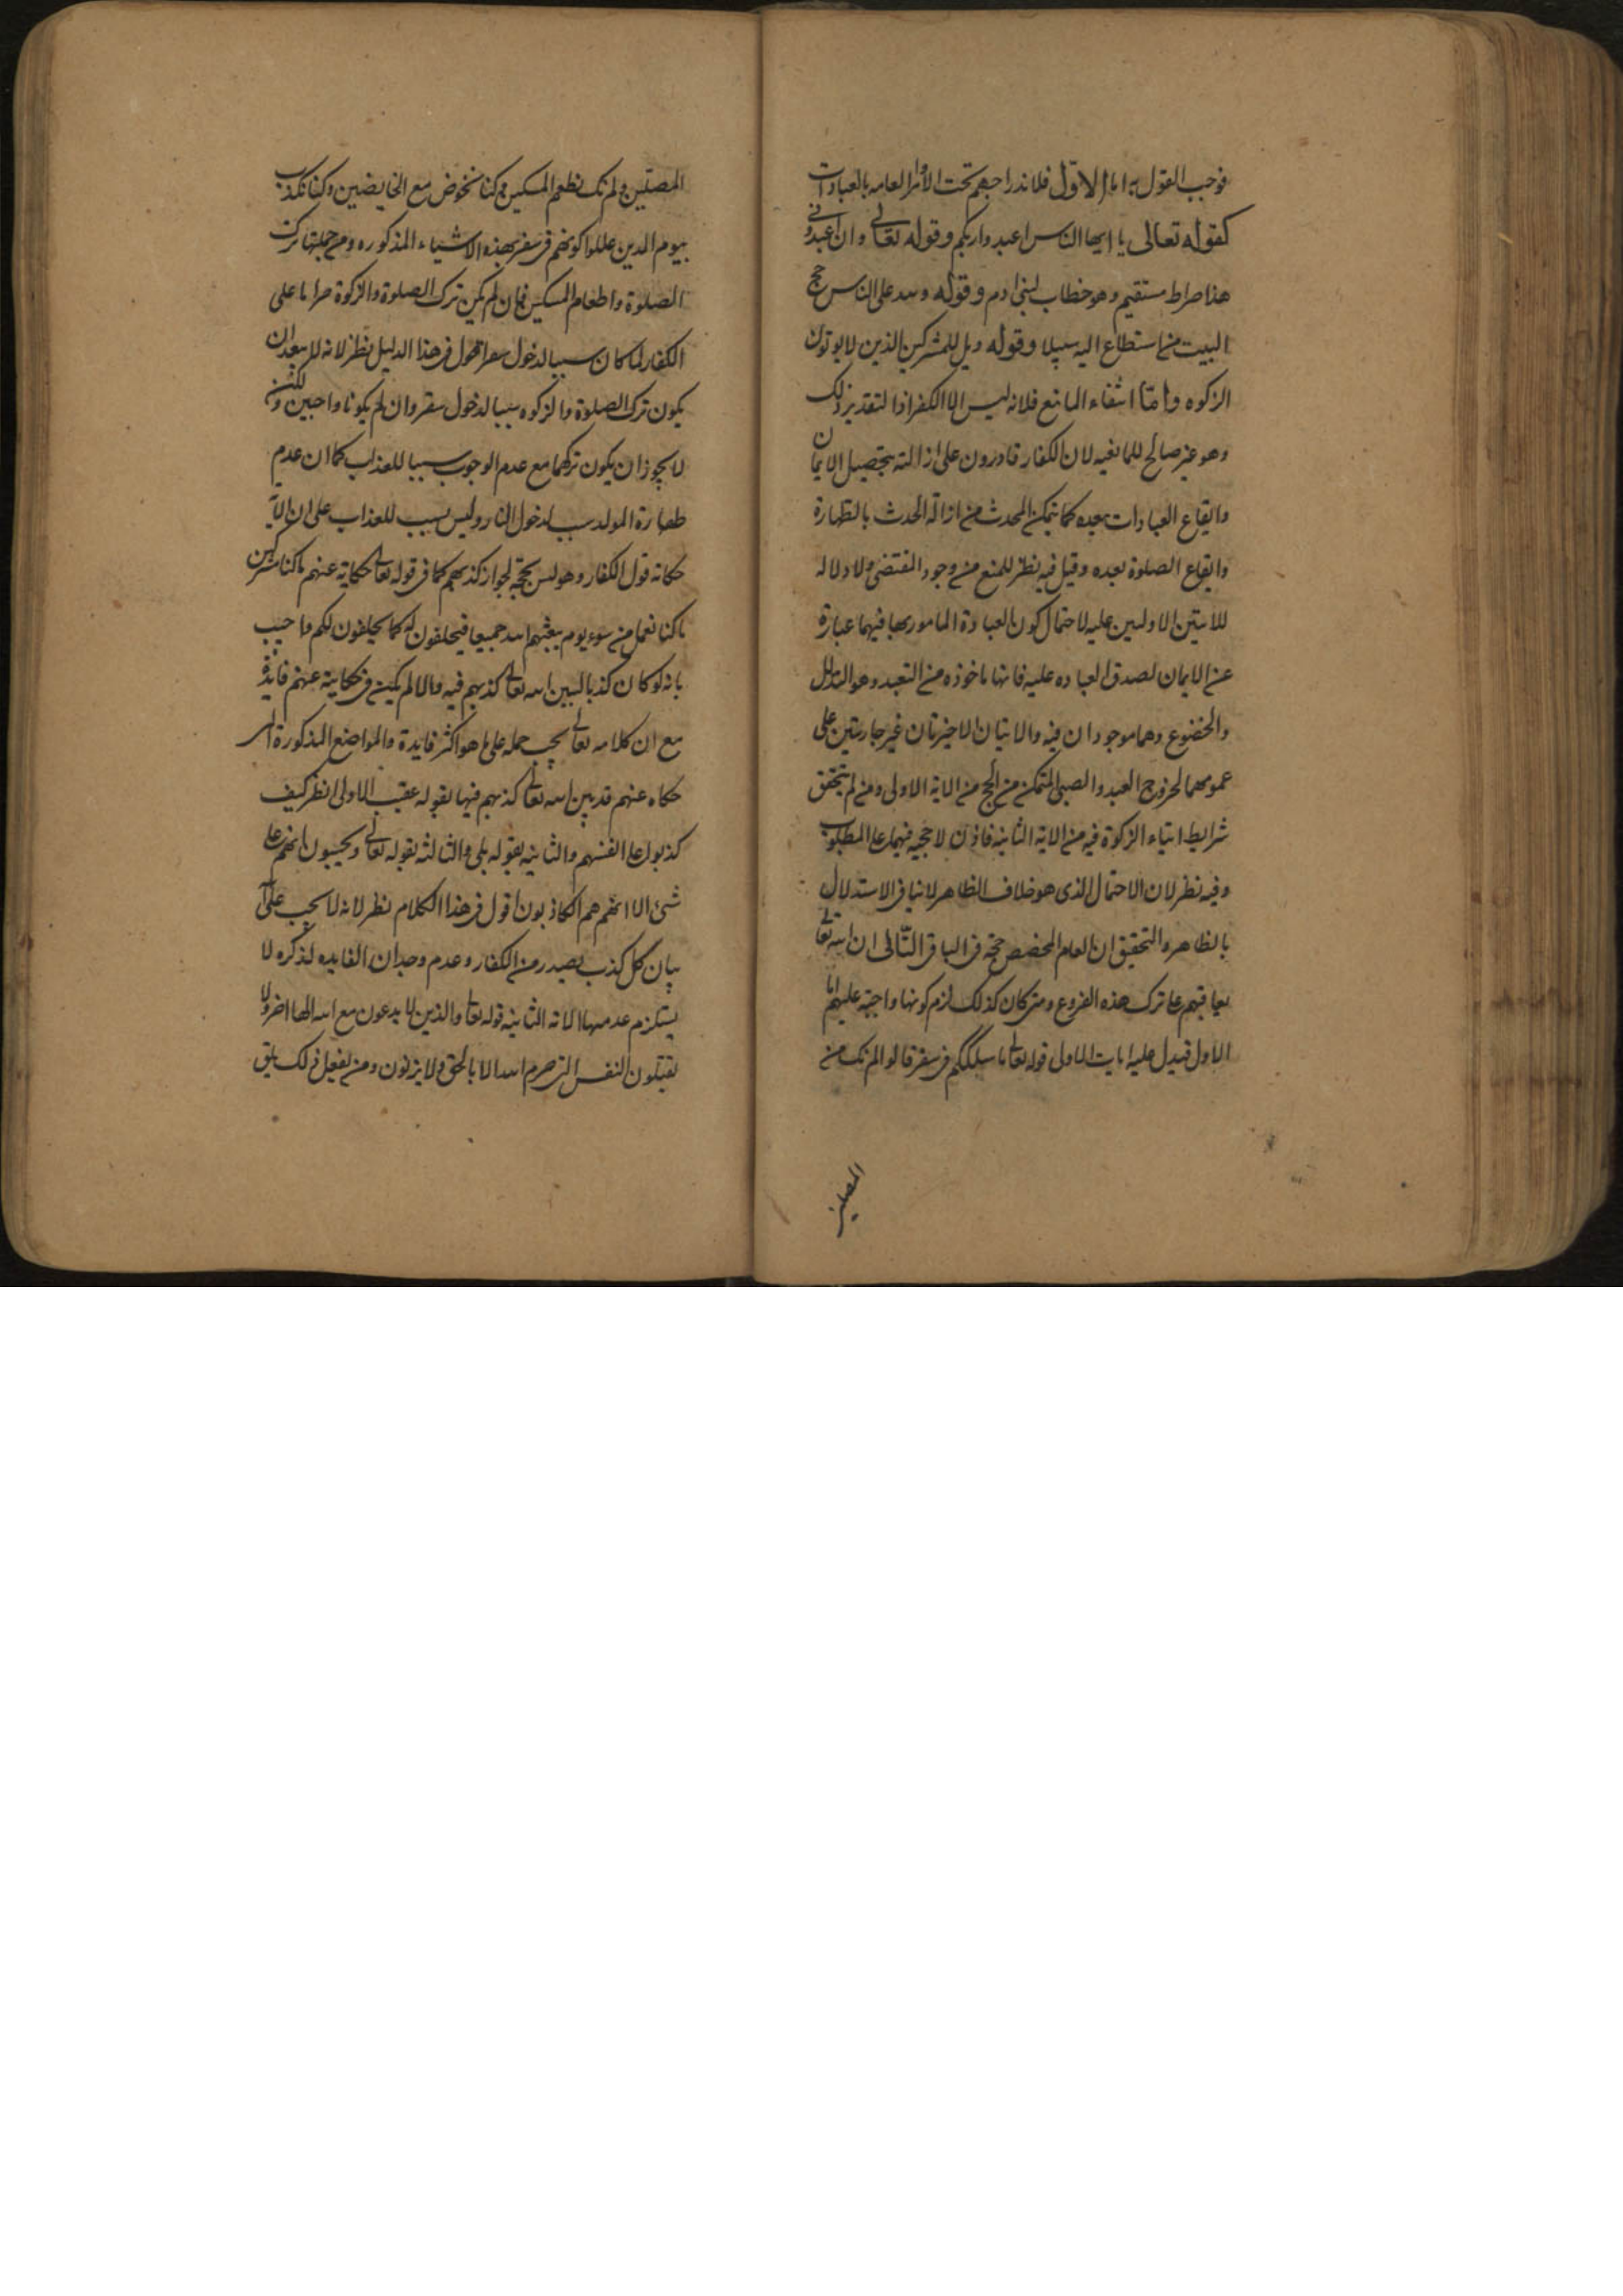 فوجب القول به اما الاول فلاندراجهم تحت الاوامر العامه بالعبادات
كقوله تعالى يا ايها الناس اعبدوا ربكم وقوله تعالى وان اعبدونى
هذا صراط مستقيم وهو خطاب لبنى ادم وقوله ولله على الناس حج
البيت من استطاع اليه سبيلا وقوله ويل للمشركين الذين لا يوتون
الزكوه واما انتفاء المانع فلانه ليس الا الكفر اذ التقدير ذلك
وهو غير صالح للمانعيه لان الكفار قادرون على ازالته بتحصيل الايمان
وايقاع العبادات بعده كما يتمكن المحدث من ازالة الحدث بالطهارة
وايقاع الصلوة بعده وقيل فيه نظر للمنع من وجود المقتضى ولا دلاله
للايتين الاوليين عليه لاحتمال كون العبادة المامور بها فيهما عبارة
عن الايمان لصدق العباده عليه فانها ماخوذه من التعبد وهو التذلل
والخضوع وهما موجودان فيه والايتان الاخيرتان غير جاريتين على
عمومهما لخروج العبد والصبى المتمكن من الحج من الاية الاولى ومن لم يتحقق
شرايط ايتاء الزكوة فيه من الاية الثانيه فاذن لا حجيه فيهما على المطلوب
وفيه نظر لان الاحتمال الذى هو خلاف الظاهر لا ينافى الاستدلال
بالظاهر والتحقيق ان العام المخصص حجة فى الباقى الثانى ان الله تعالى
يعاقبهم على ترك هذه الفروع ومتى كان كذلك لزم كونها واجبة عليهم اما
الاول فيدل عليه ايات الاولى قوله تعالى ما سلككم فى سقر قالوا لم نك من
المصلين
المصلين ولم نك نطعم المسكين وكنا نخوض مع الخايضين وكنا نكذب
بيوم الدين عللوا كونهم فى سقر بهذه الاشياء المذكوره ومن جملتها ترك
الصلوة واطعام المسكين فان لم يكن ترك الصلوة والزكوة حراما على
الكفار لما كان سببا لدخول سقر اقول فى هذا الدليل نظر لانه لا يبعد ان
يكون ترك الصلوة والزكوه سببا لدخول سقر وان لم يكونا واجبين ولكن
لا يجوز ان يكون تركهما مع عدم الوجوب سببا للعذاب كما ان عدم
طهارة المولد سبب لدخول النار وليس بسبب للعذاب على ان الآية
حكاية قول الكفار وهو ليس بحجة لجواز كذبهم كما فى قوله تعالى حكاية عنهم ما كنا مشركين
ما كنا نعمل من سوء يوم يبعثهم الله جميعا فيحلفون له كما يحلفون لكم واجيب
بانه لو كان كذبا لبين الله تعالى كذبهم فيه والا لم يكن فى حكايته عنهم فايدة
مع ان كلامه تعالى يجب حمله على ما هو اكثر فايدة والمواضع المذكورة التى
حكاه عنهم قد بين الله تعالى كذبهم فيها بقوله عقيب الاولى انظر كيف
كذبوا على انفسهم والثانيه بقوله بلى والثالثه بقوله تعالى ويحسبون انهم على
شئ الا انهم هم الكاذبون اقول فى هذا الكلام نظر لانه لا يجب عليه
بيان كل كذب يصدر من الكفار وعدم وجدان الفايده لذكره لا
يستلزم عدمها الاية الثانية قوله تعالى والذين لا يدعون مع الله الها اخر ولا
يقتلون النفس التى حرم الله الا بالحق ولا يزنون ومن يفعل ذلك يلق